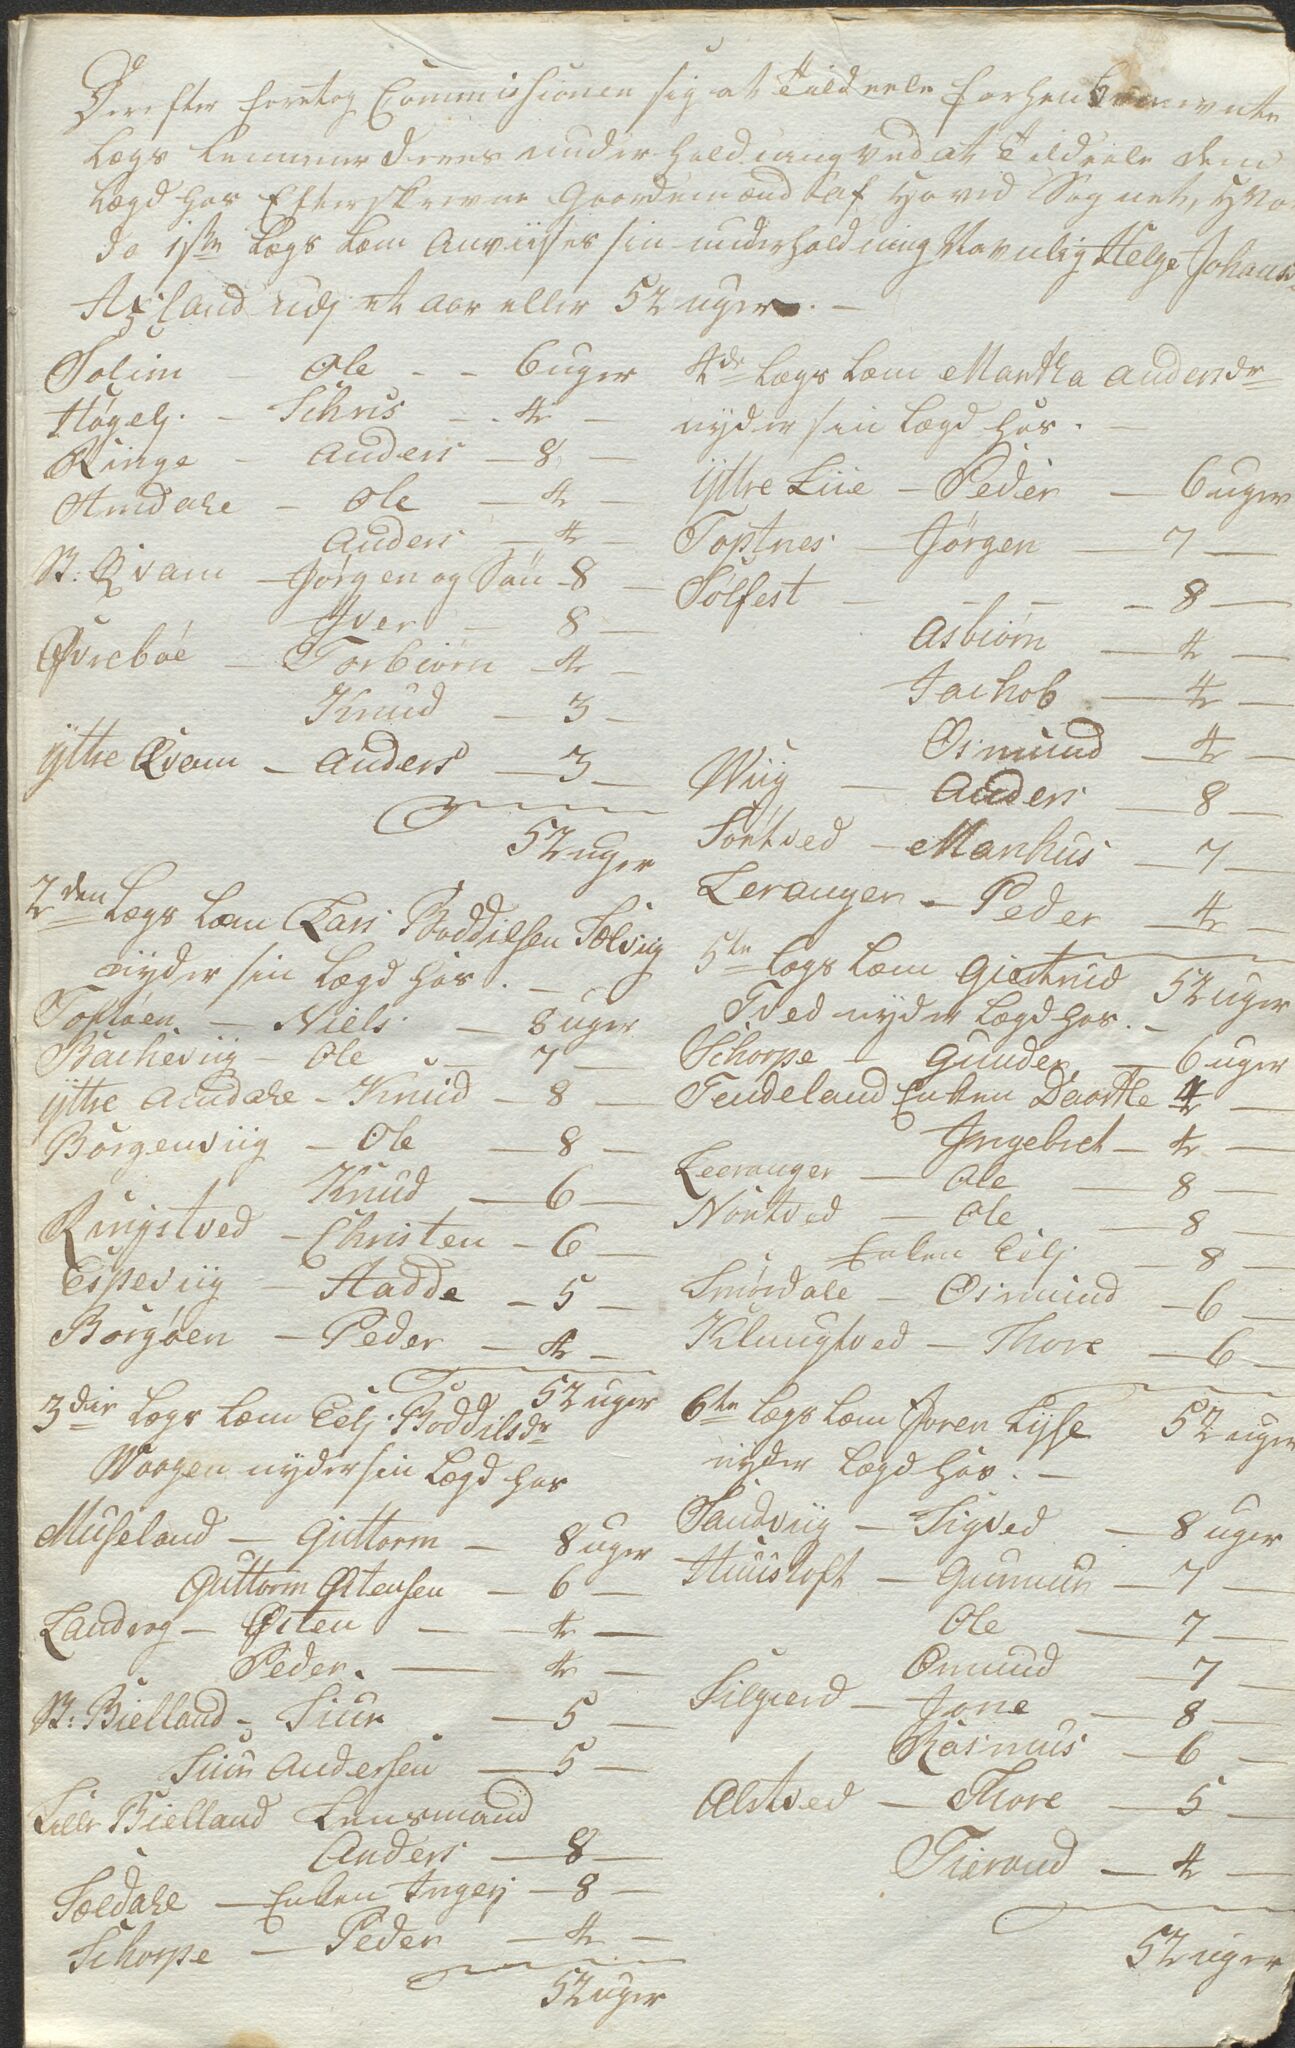 Derefter foretog Commissionen sig at Tildeele forhen benævnte
Lægs Lemmer deres underholdning ved at Tildeele dem
Lægd hos Efterskrevne Gaardemænd af Hoved Sognet, hvor
da 1ste Lægs Lem Anviises sin underholdning Navnlig Helge Johans.
Asland udj et aar eller 52 uger. -
Solim - Ole - - 6 uger
Høgelj. - Schris - 4 -
Ringe - Anders - 8 -
Amdahl - Ole - 4 -
Anders - 4 -
St: Qvam - Jørgen og Søn - 8 -
Iver - 8 -
Øvrebøe - Torbiørn - 4 -
Knud - 3 -
ÿttre Qvam - Anders - 3 -
52 uger
2den Lægs Lem Kari Boddilsen Sølviig
nyder sin Lægd hos. -
Toftøen - Niels - 8 uger
Bacheviig - Ole - 7 -
ÿttre Amdahl - Knud - 8 -
Borgenviig - Ole - 8 -
Knud - 6 -
Ringstved - Christen - 6 -
Espeviig - Aadde - 5 -
Borgøen - Peder - 4 -
52 uger
3die Lægs Lem Eelj Boddilsdr
Waagen nyder sin Lægd hos
Museland - Guttorm - 8 uger
Guttorm Østensen - 6 -
Landrog - Østen - 4 -
Peder. - 4 -
St: Bielland - Siur - 5 -
Siur Andersen - 5 -
Lille Bielland Lensmand
Anders - 8 -
Søldahl - Enken Ingerj - 8 -
Schorpe - Peder - 4 -
52 uger
4de Lægs Lem Martha Andersdr
nyder sin Lægd hos. -
ÿttre Liie - Peder - 6 uger
Toftnes - Jørgen - 7 -
Sølfest - - - 8 -
Asbiørn - 4 -
Jachob - 4 -
Osmund - 4 -
Wiig - Anders - 8 -
Sørtved - Marchus - 7 -
Leranger - Peder - 4 -
52 uger
5te Lægs Lem Giertrud
Tved nyder Lægd hos. -
Schorpe - Gunder - 6 uger
Tendeland Enken Daarthe 4 -
Ingebret - 4 -
Leeranger - Ole - 8 -
Nortved - Ole - 8 -
Enken Eilj - 8 -
Smørdale - Osmund - 6 -
Klungtved - Thore - 6 -
52 uger
6te Lægs Lem Joren Lysse
nyder Lægd hos. -
Sandviig - Sigved - 8 uger
Huustoft - Gunnun - 7 -
Ole - 7 -
Omund - 7 -
Silgierd - Jone - 8 -
Rasmus - 6 -
Alstved - Thore - 5 -
Tierand - 4 -
52 uger